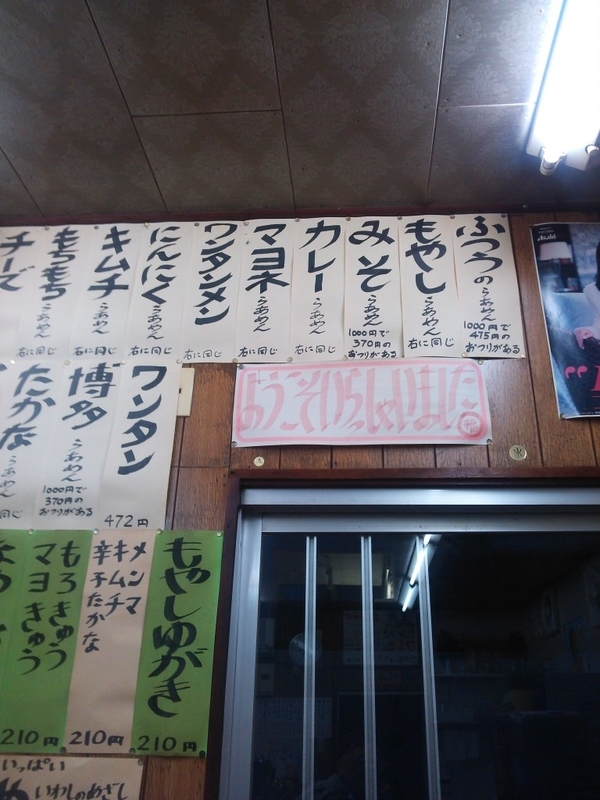 ふつうのらあめん
1000円で
475円の
おつりがある
もやしらあめん
右に同じ
みそらあめん
1000円で
370円の
おつりがある
カレーらあめん
右に同じ
マヨネらあめん
右に同じ
ワンタンメン
右に同じ
にんにくらあめん
右に同じ
キムチらあめん
右に同じ
もちもちらあめん
右に同じ
チーズ
ようこそいらっしゃいました
ワンタン
472円
博多らあめん
1000円で
370円の
おつりがある
たかならあめん
同じ
もやしゆがき
210円
メンマ
キムチ
辛子たかな
210円
もろきゅう
マヨきゅう
210円
いっぱい
いわしのめざし
Asahi